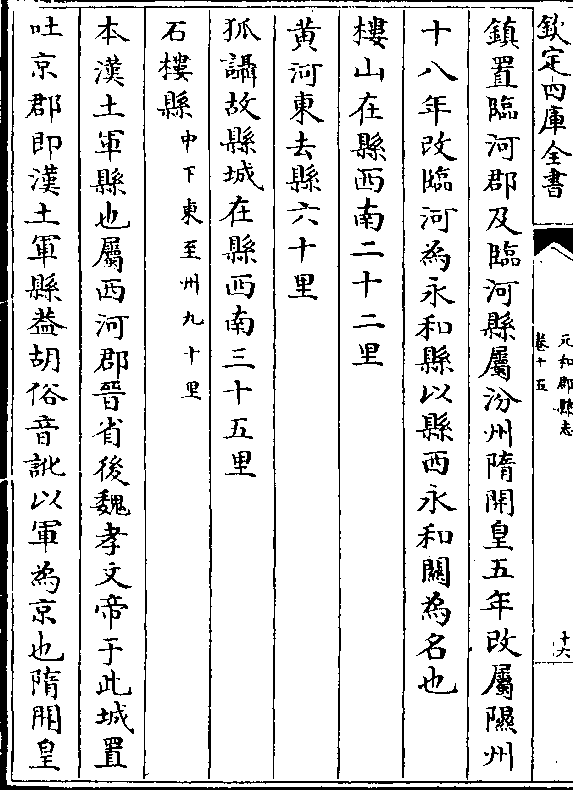 欽定四庫全書
元和郡縣志
卷十五
十六
鎮置臨河郡及臨河縣屬汾州隋開皇五年改屬隰州
十八年改臨河為永和縣以縣西永和關為名也
樓山在縣西南二十二里
黄河東去縣六十里
狐讘故縣城在縣西南三十五里
石樓縣中下東至州九十里
本漢土軍縣也屬西河郡晉省後魏孝文帝于此城置
吐京郡即漢土軍縣葢胡俗音訛以軍為京也隋開皇